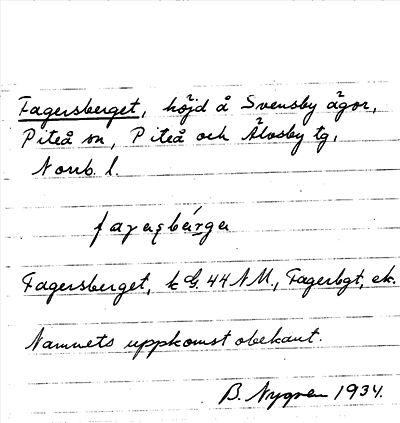 Fagersberget, höjd å Svensby ägor,
Piteå sn, Piteå och Älvsby tg,
Norrb. l.
Fagersberget, k G. 44 NM., Fagerbgt, ek.
Namnets uppkomst obekant.
B. Nygren 1934.